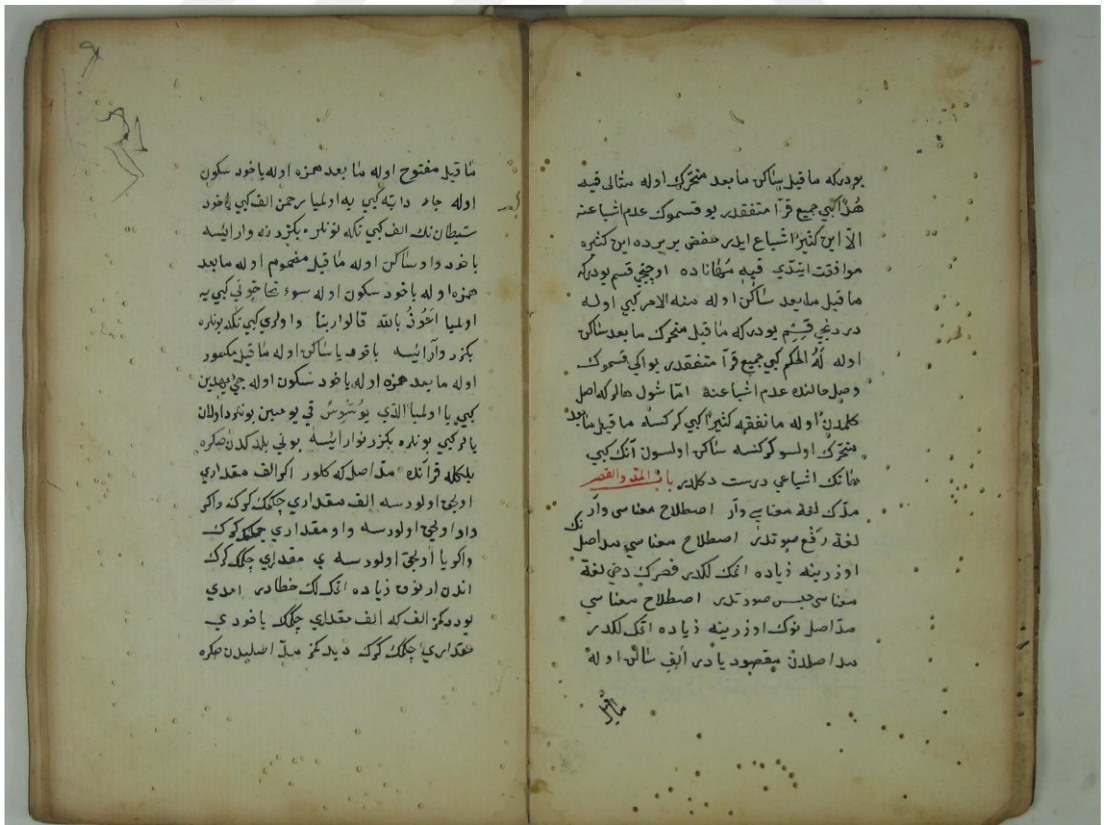 بودركه ما قبل ساكن ما بعد متحرك اوله مثالى فيه
هُدًا كبي جميع قرّا متفقدر بو قسموك عدم اشباعنه
الّا ابن كثير اشباع ايدر حفص بر يرده ابن كثيره
موافقت ايتدي فيه مُهانا ده اوچنجي قسم بودركه
ما قبل ما بعد ساكن اوله منه الامر كبي اوله
دردنجي قسم بودركه ما قبل متحرك ما بعد ساكن
اوله لَهُ الحكم كبي جميع قرّا متفقدر بو ايكي قسموك
وصل حالنده عدم اشباعنه امّا شول هالر كه اصل
كلمه‌دن اوله ما نفقه كثيرًا كبي كركسه ما قبل ما بعد
متحرك اولسو كركسه ساكن اولسون آنك كبي
هانك اشباعي درست دكلدر باب المد والقصر
مدّك لغة معناسي وار اصطلاح معناسى وار
لغة رفع صوتدر اصطلاح معناسي مد اصلنك
اوزرينه زياده اتمك لكدر قصرك دخي لغة
معناسى حبس صوتدر اصطلاح معناسي
مدّ اصلنوك اوزرينه زياده اتمك لكدر
مد اصلدن مقصود يا در الف ساكن اوله
ما قبل مفتوح اوله ما بعد همزه اوله ياخود سكون
اوله جاء دابّة كبي يه اولميا رحمن الف كبي ياخود
شيطان نك الف كبي نكه بونلره بكزر نه وار ايسه
ياخود واو ساكن اوله ما قبل مضموم اوله ما بعد
همزه اوله ياخود سكون اوله سوء تحاجّوني كبي يه
اولميا اعوذُ بالله قالوا ربنا واولري كبي نكه بونلره
بكزر وار ايسه ياخود يا ساكن اوله ما قبل مكسور
اوله ما بعد همزه اوله ياخود سكون اوله جئ بهدين
كبي يا اولميا الذي يوسوس في يومين بونلرد اولان
يالر كبي بونلره بكزر نوار ايسه بوني بلدكدن صكره
بلكله قرآنده مدّ اصل كه كلور اكر الف مقداري
اوليحق اولورسه الف مقداري چكمك كرك واكر
واو اوليحق اولورسه واو مقداري چكمك كرك
واكر يا اوليحق اولورسه ي مقداري چكمك كرك
اندن ارتوق زياده اتمك لك خطادر امدي
بو ددكمز الف كه الف مقداري چكمك ياخود ي
مقداري چكمك كرك ديدكمز مدّ اصليدن صكره